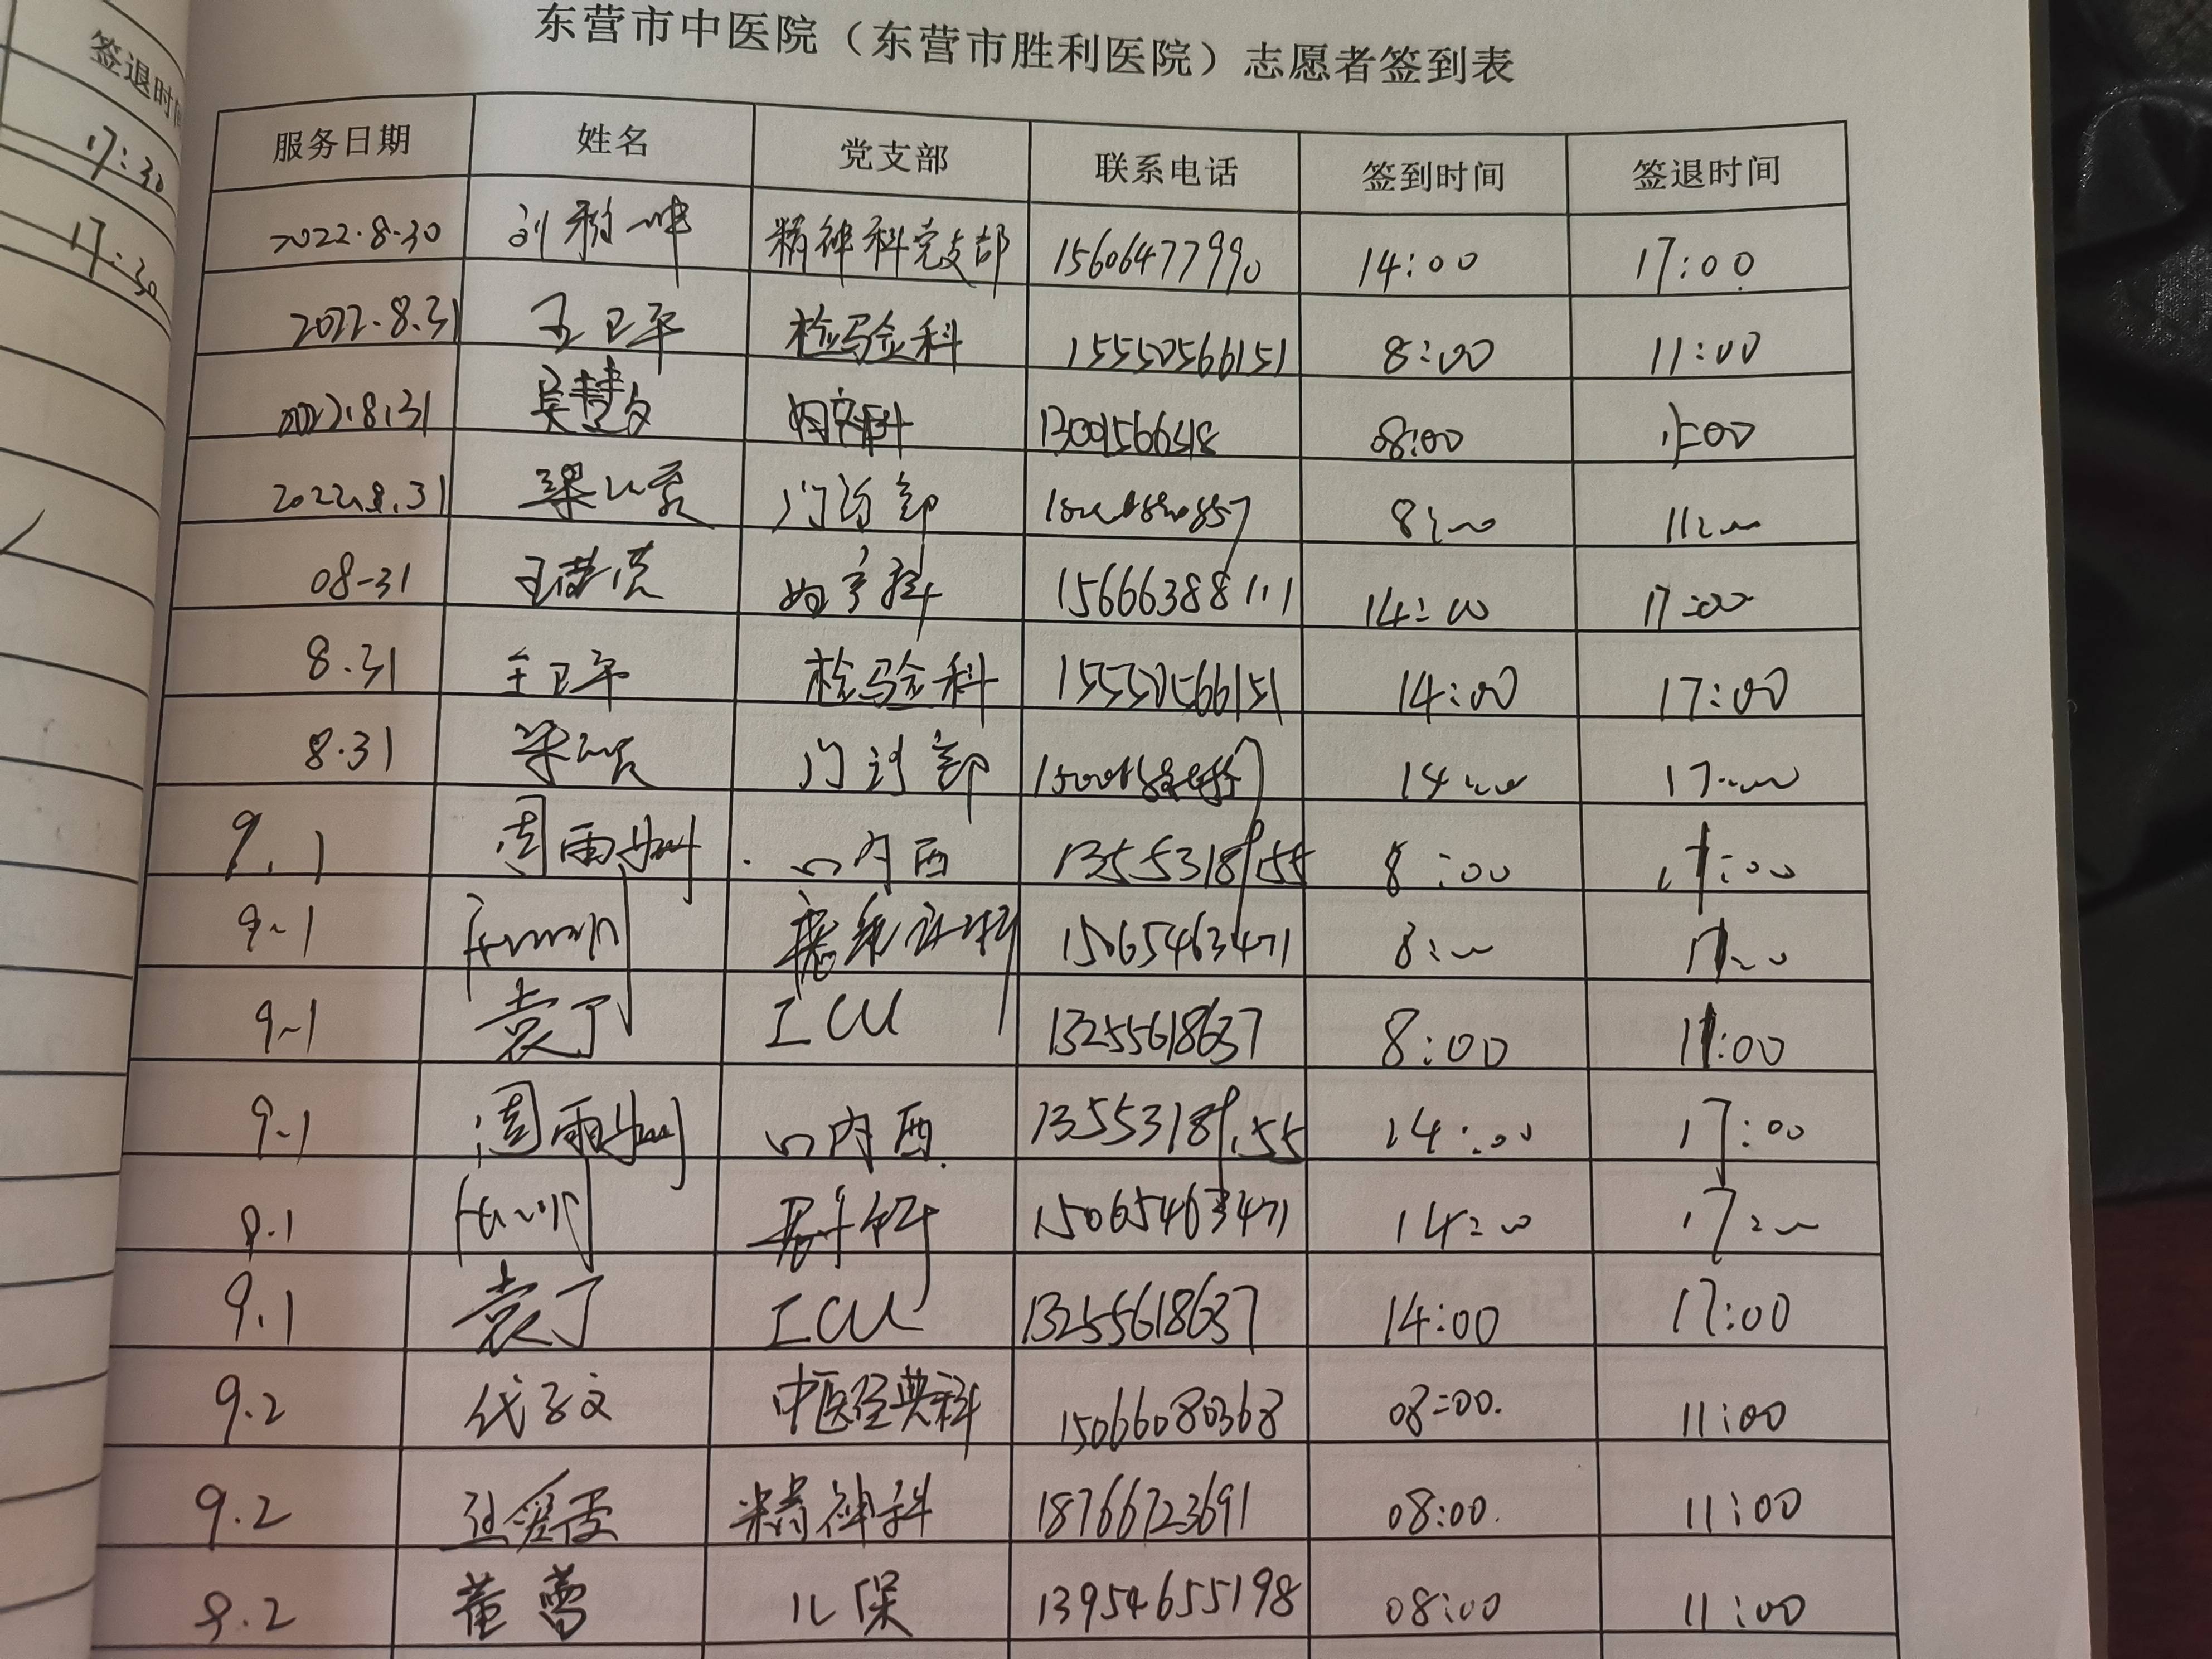 签退时间
17:30
17:30
东营市中医院（东营市胜利医院）志愿者签到表
服务日期 姓名 党支部 联系电话 签到时间 签退时间
2022.8.30 精神科党支部 15606477990 14:00 17:00
2022.8.31 王卫平 检验科 15550566151 8:00 11:00
2022.8.31 吴慧文 妇产科 13001566518 08:00 11:00
2022.8.31 门诊部 8:00 11:00
08-31 妇产科 15666388111 14:00 17:00
8.31 王卫平 检验科 15550566151 14:00 17:00
8.31 门诊部 14:00 17:00
9.1 周雨 心内西 8:00 11:00
9-1 15065463471 8:00 11:00
9-1 袁丁 ICU 13255618637 8:00 11:00
9-1 周雨 心内西 14:00 17:00
9.1 15065463471 14:00 17:00
9.1 袁丁 ICU 13255618637 14:00 17:00
9.2 代子文 中医经典科 15066080368 08:00 11:00
9.2 精神科 18766723691 08:00 11:00
9.2 董蕾 儿保 13954655198 08:00 11:00